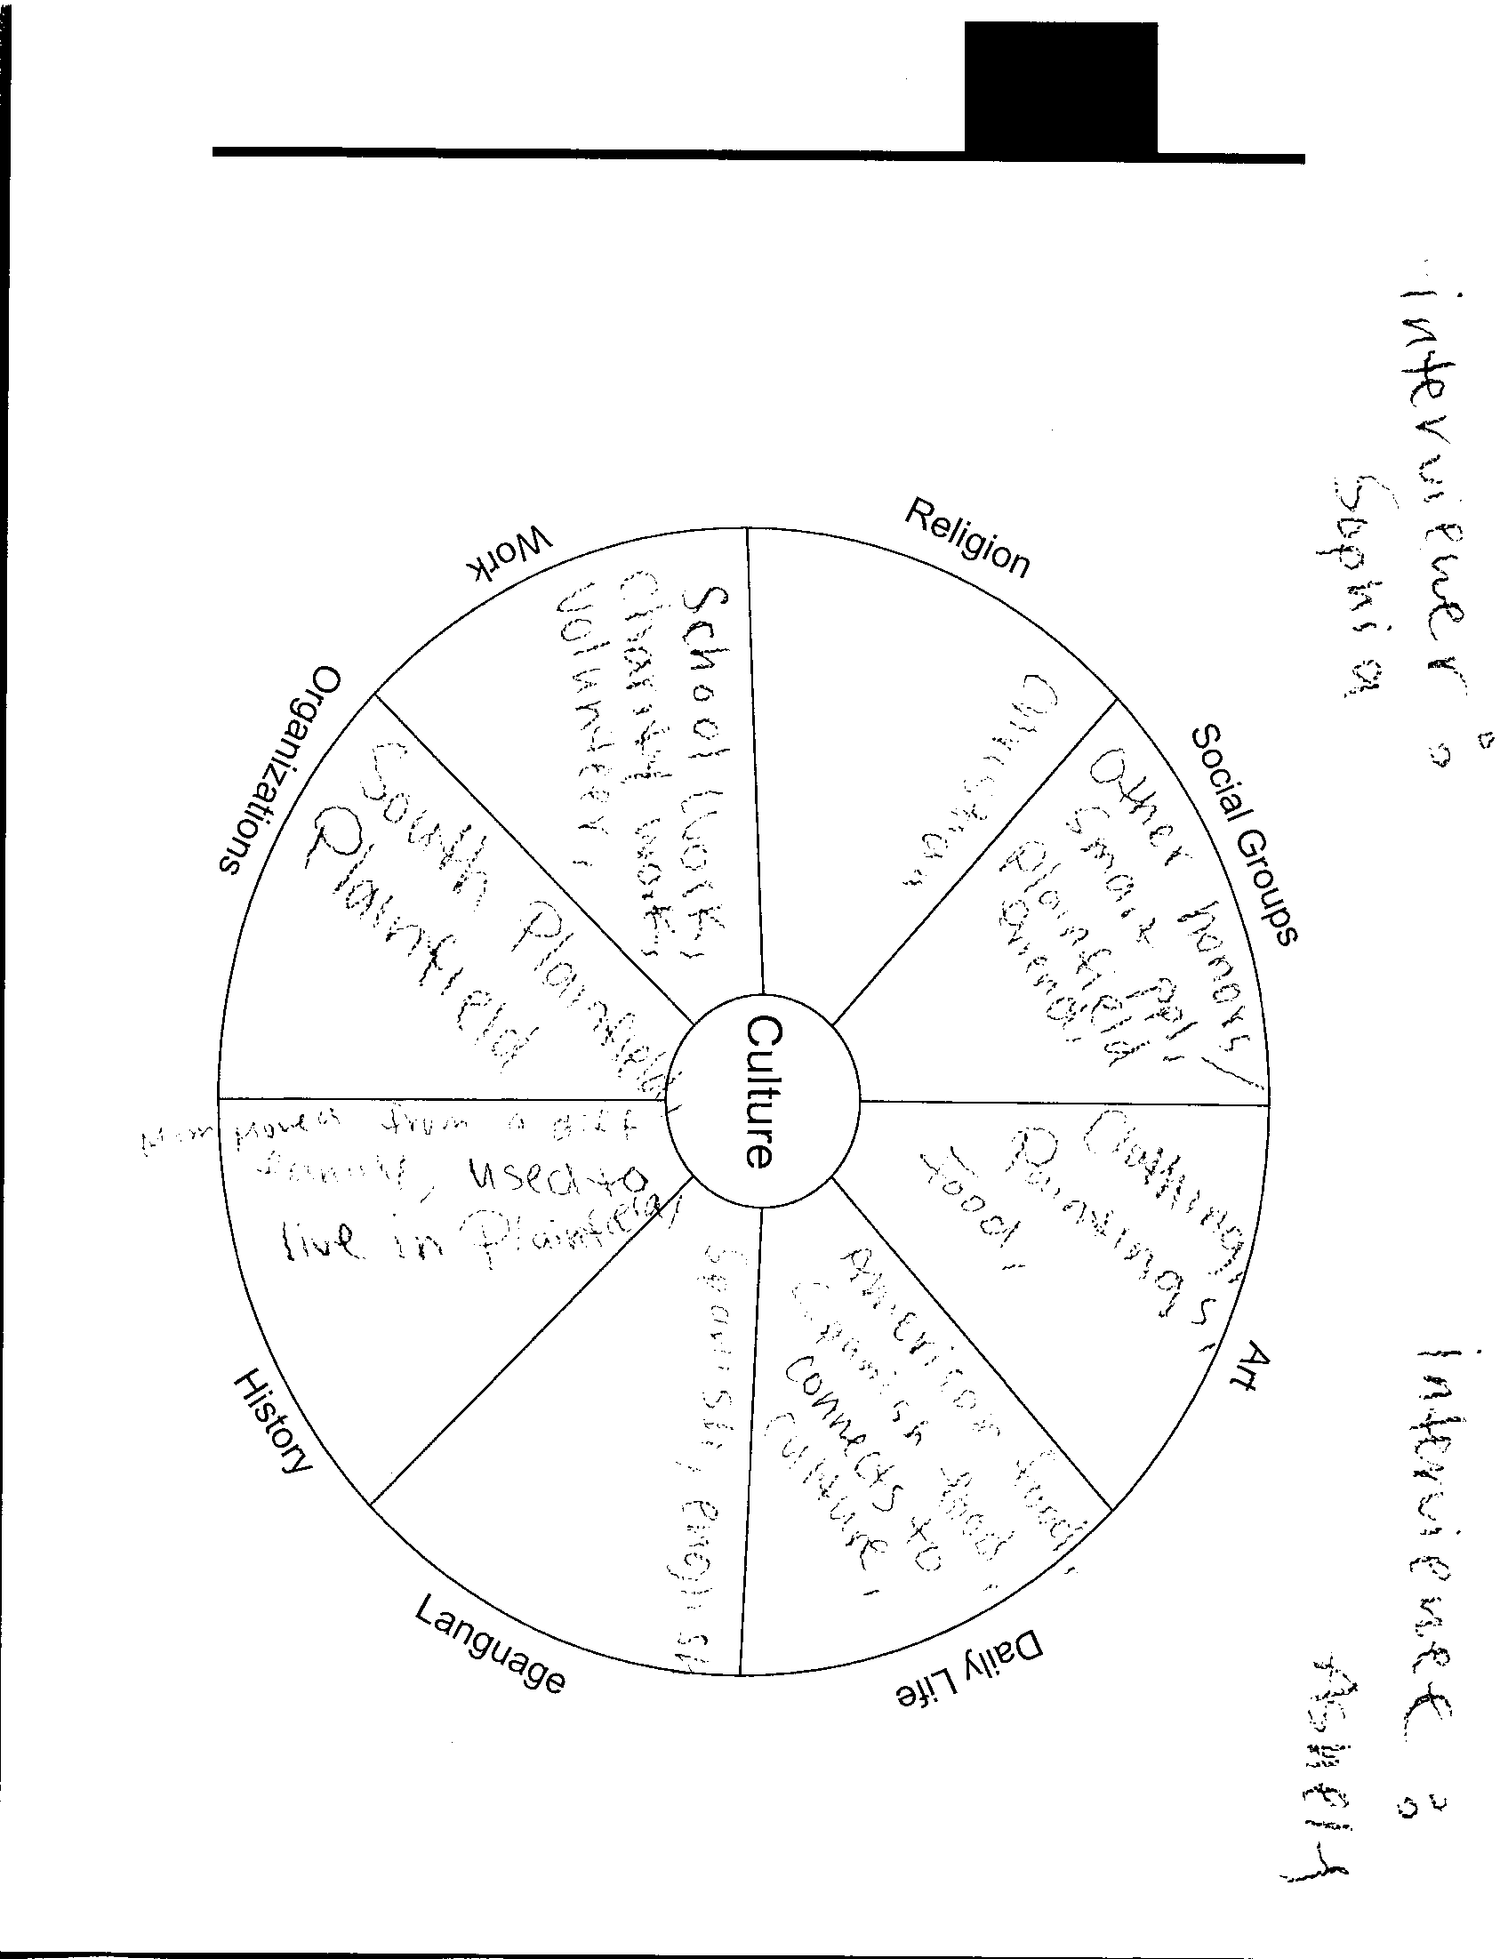 interviewer:
Sophia
interviewee:
Ashely
Culture
Religion
Christian
Social Groups
Other honors/
smart ppl,
Plainfield
friend,
Art
Clothing,
Paintings,
food,
Daily Life
American food,
Spanish food,
connects to
culture,
Language
Spanish, english
History
Mom moved from a diff
used to
live in Plainfield,
Organizations
South Plainfield,
Plainfield
Work
School work,
Charity work,
volunteer,